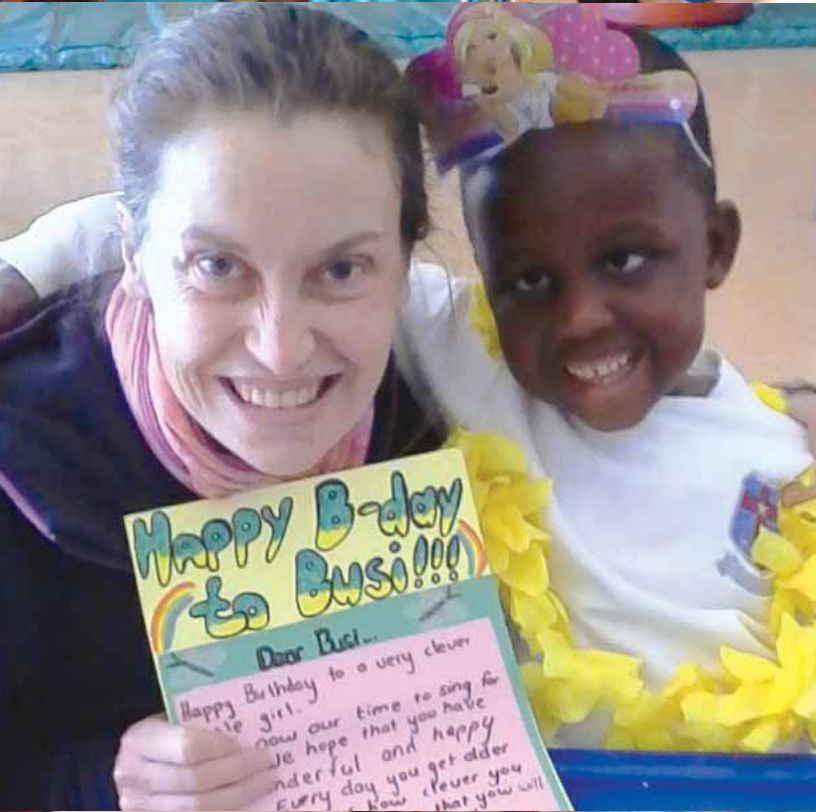 Happy B-day
to Busi!!!
Dear Busi...
Happy Buthday to a very clever
girl.
now our time to sing for
hope that you have
and happy
Every day you get older
how clever you
that you will